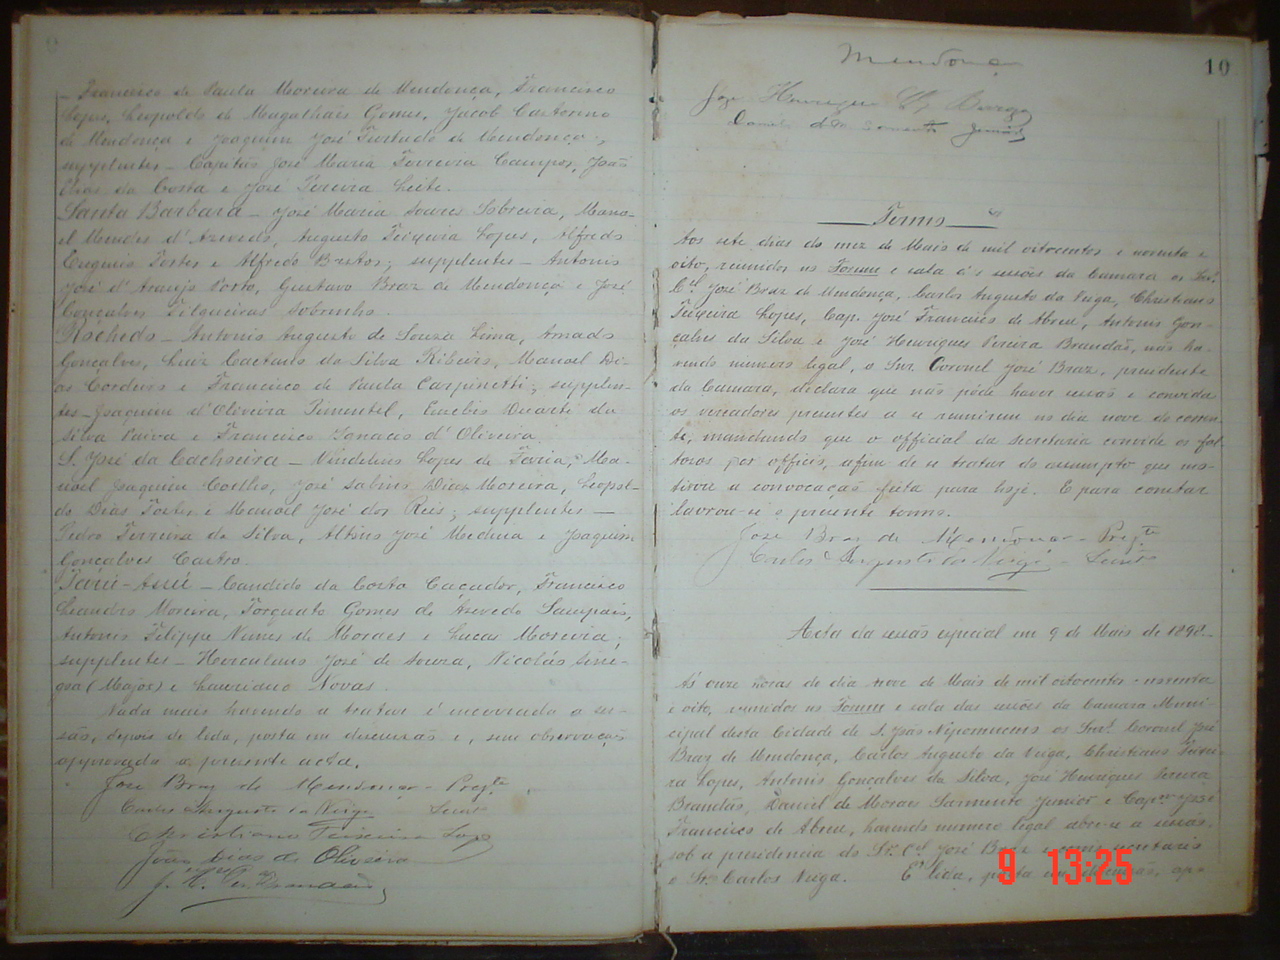 - Francisco de Paula Moreira de Mendonça, Francisco
Lopes, Leopoldo de Magalhães Gomes, Jacob Castorino
de Mendonça e Joaquim José Furtado de Mendonça;
supplentes - Capitão José Maria Ferreira Campos, João
Dias da Costa e José Pereira Leite.
Santa Barbara - José Maria Soares Sobreira, Mano-
el Mendes d'Azevedo, Augusto Teixeira Lopes, Alfredo
Eugenio Fortes e Alfredo Bastos; supplentes - Antonio
José d'Araujo Porto, Gustavo Braz de Mendonça e José
Gonçalves Filgueiras Sobrinho.
Rochedo - Antonio Augusto de Souza Lima, Amado
Gonçalves, Luiz Caetano da Silva Ribeiro, Manoel Di-
as Cordeiro e Francisco de Paula Carpinetti; supplen-
tes - Joaquim d'Oliveira Pimentel, Duarte da
Silva Paiva e Francisco Ignacio d'Oliveira.
S. José da Cachoeira - Lopes de Faria, Ma-
noel Joaquim Coelho, José Sabino Dias Moreira, Leopol-
do Dias Fortes e Manoel José dos Reis; supplentes -
Pedro Ferreira da Silva, Altino José Medina e Joaquim
Gonçalves Castro.
Tarú-Assú - Candido da Costa Caçador, Francisco
Leandro Moreira, Torquato Gomes de Azevedo Sampaio,
Antonio Filippe Nunes de Moraes e Lucas Moreira;
supplentes - Herculano José de Souza, Nicoláo Sini-
(Major) e Lauriano Novas.
Nada mais havendo a tratar é encerrada a ses-
são, depois de lida, posta em discussão e, sem observação
approvada a presente acta.
José Braz de Mendonça - Presᵗᵉ
Carlos Augusto da Veiga Secrᵒ
Christiano Teixeira Lopes
João Dias de Oliveira
J. H. Per. Brandão
Mendonça
10
José Henrique
Daniel de M Sarmento Junior
Termo
Aos sete dias do mez de Maio de mil oitocentos e noventa e
oito, reunidos no Forum e sala das sessões da Camara os Snrˢ.
Cᵉˡ José Braz de Mendonça, Carlos Augusto da Veiga, Christiano
Teixeira Lopes, Cap. José Francisco de Abreu, Antonio Gon-
çalves da Silva e José Henriques Pereira Brandão, não ha-
vendo numero legal, o Snr. Coronel José Braz, presidente
da Camara, declara que não póde haver sessão e convida
os vereadores presentes a se reunirem no dia nove do corren-
te, mandando que o official da secretaria convide os fal-
tosos por officio, afim de se tratar do assumpto que mo-
tivou a convocação feita para hoje. E para constar
lavrou-se o presente termo.
José Braz de Mendonça - Presᵗᵉ
Carlos Augusto da Veiga - Secrᵒ
Acta da sessão especial em 9 de Maio de 1898.
Ás onze horas do dia nove de Maio de mil oitocentos e noventa
e oito, reunidos no Forum e sala das sessões da Camara Muni-
cipal desta Cidade de S. João Nepomuceno os Snrˢ. Coronel José
Braz de Mendonça, Carlos Augusto da Veiga, Christiano Teixei-
ra Lopes, Antonio Gonçalves da Silva, José Henriques Pereira
Brandão, Daniel de Moraes Sarmento Junior e Capᵐ José
Francisco de Abreu, havendo numero legal abre-se a sessão.
sob a presidencia do Sr. Cᵉˡ José Braz e como secretario
o Sr. Carlos Veiga. E' lida, posta em discussão, ap-
9 13:25